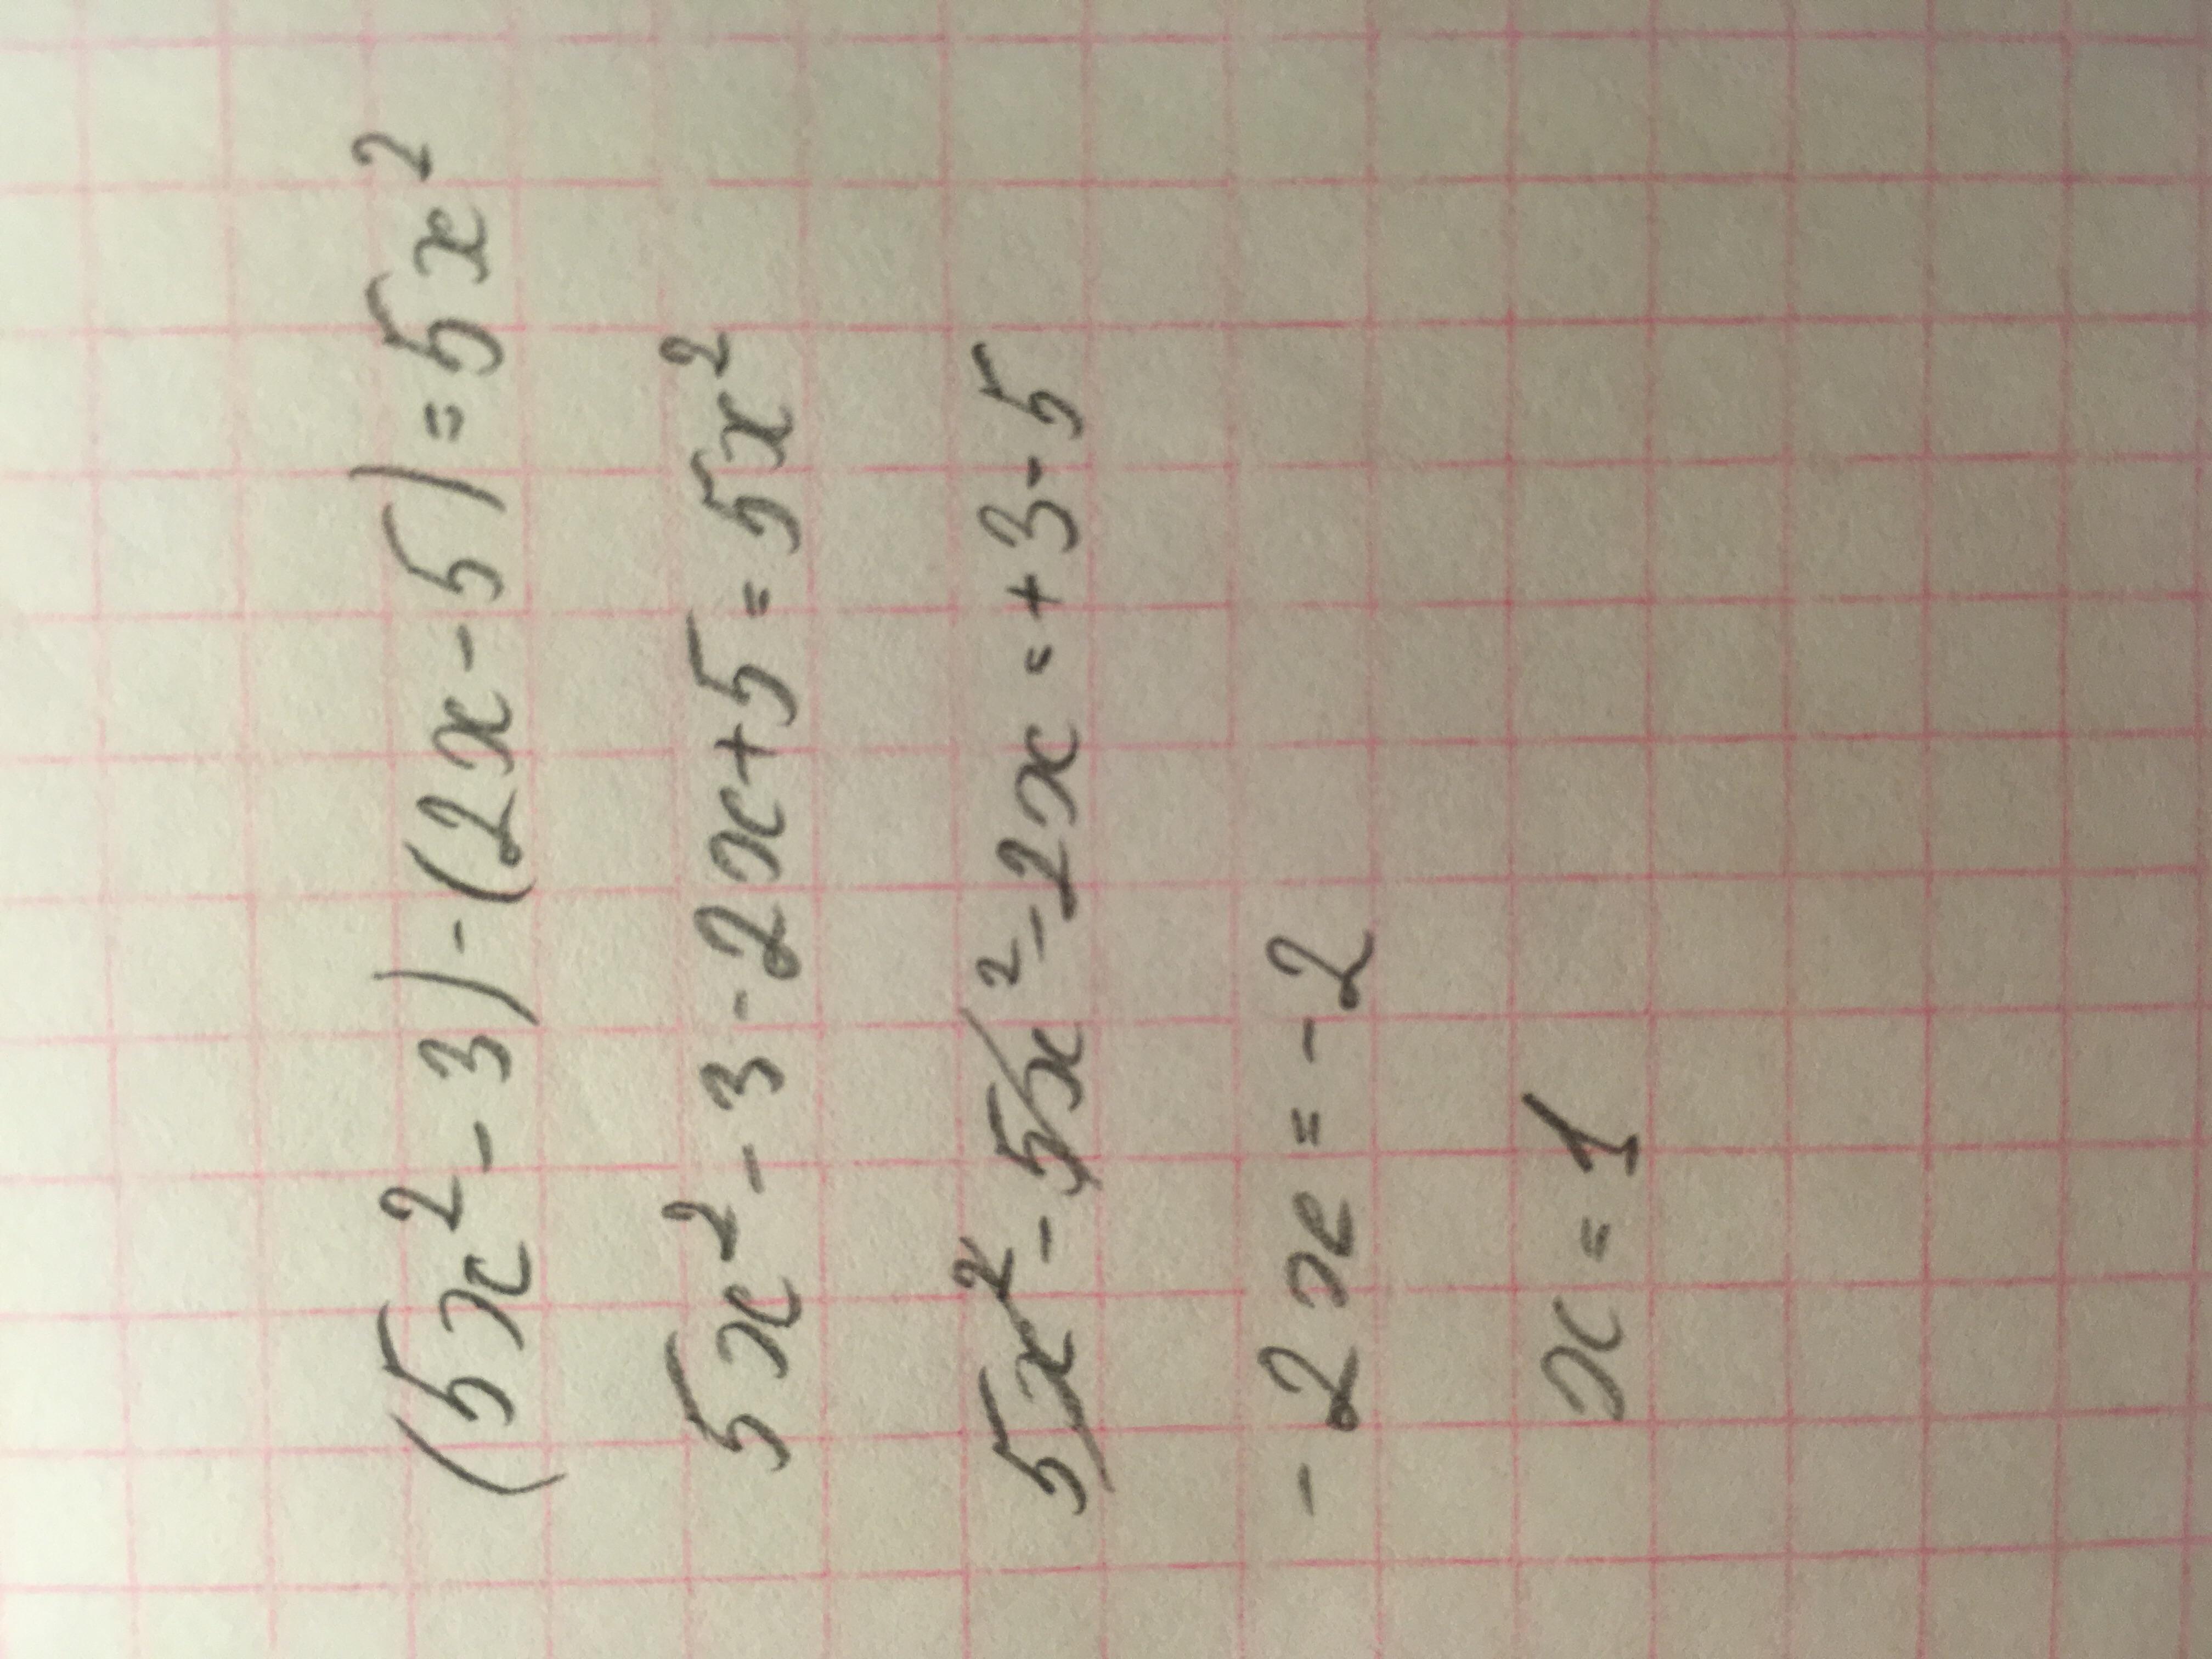 (5x²-3)-(2x-5)=5x²
5x²-3-2x+5=5x²
5x²-5x²-2x=+3-5
-2x=-2
x=1